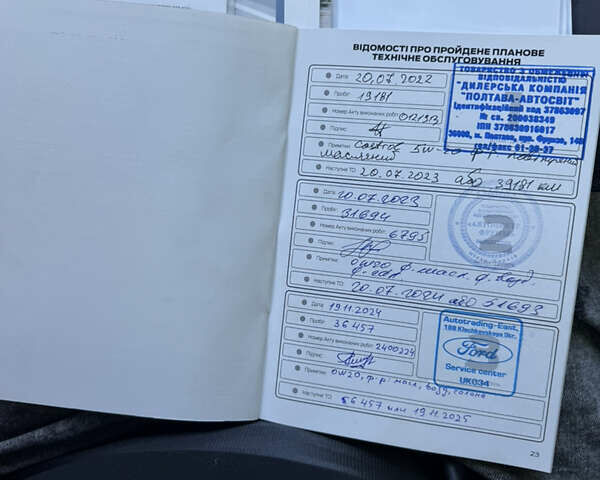 ВІДОМОСТІ ПРО ПРОЙДЕНЕ ПЛАНОВЕ
ТЕХНІЧНЕ ОБСЛУГОВУВАННЯ
Дата: 20,07,2022
Пробіг: 19181
Номер Акту виконаних робіт: 0121913
Підпис:
Примітки: 5W-20
масляний
Наступне ТО: 20,07,2023 або 39181 км
ВІДПОВІДАЛЬНІСТЮ
"ДИЛЕРСЬКА КОМПАНІЯ
"ПОЛТАВА-АВТОСВІТ"
Ідентифікаційний код 37863097
№ св. 200038349
ІПН 378630916017
Дата: 20.07.2023
Пробіг: 31694
Номер Акту виконаних робіт: 6795
Підпис:
Примітки: 0W20 ф. масл. ф.
Наступне ТО: 20.07.2024 або 51693
2
Дата: 19.11.2024
Пробіг: 36 457
Номер Акту виконаних робіт: 2400224
Підпис:
Примітки: 0W20,
Наступне ТО: 56 457 или 19.11.2025
Autotrading-East,
188 Klochkovskaya Str.
Ford
Service center
UK034
23